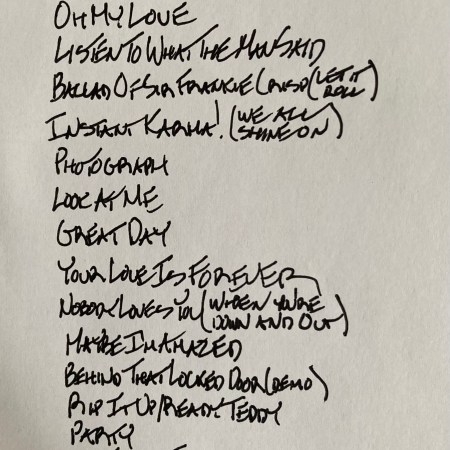 OH MY LOVE
LISTEN TO WHAT THE MAN SAID
BALLAD OF SIR FRANKIE CRISP (LET IT ROLL)
INSTANT KARMA! (WE ALL SHINE ON)
PHOTOGRAPH
LOOK AT ME
GREAT DAY
YOUR LOVE IS FOREVER
NOBODY LOVES YOU (WHEN YOU'RE DOWN AND OUT)
MAYBE I'M AMAZED
BEHIND THAT LOCKED DOOR (DEMO)
RIP IT UP/READY TEDDY
PARTY